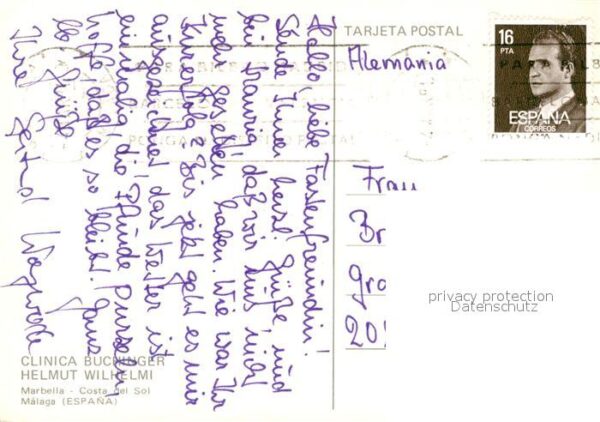 TARJETA POSTAL
Alemania
16
PTA
ESPAÑA
CORREOS
Hallo, liebe Fastenfreundin!
Sende Ihnen herzl. Grüße, und
bin traurig, daß wir uns nicht
mehr gesehen haben. Wie war Ihr
Kurerfolg? Bis jetzt geht es mir
ausgezeichnet, das Wetter ist
einmalig, die Pfunde purzeln,
hoffe, daß es so bleibt. Ganz
lb. Grüße
Ihre
Frau
Br
gro
20
privacy protection
Datenschutz
CLINICA BUCHINGER
HELMUT WILHELMI
Marbella - Costa del Sol
Málaga (ESPAÑA)